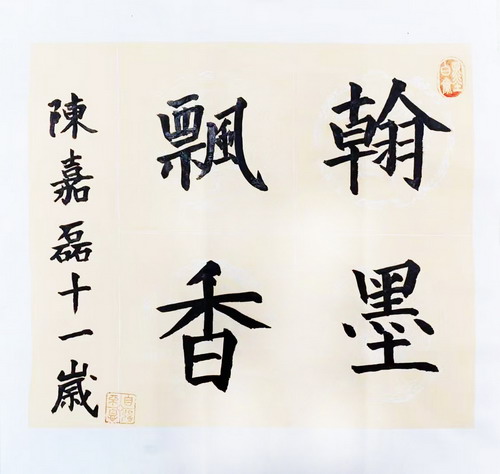 翰墨
飄香
陳嘉磊十一歲